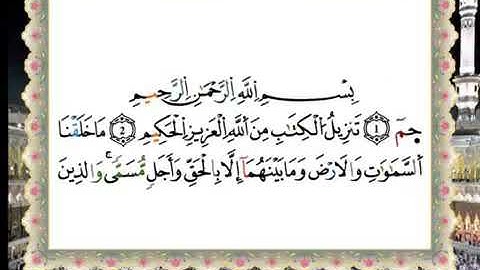 بِسْمِ اللَّهِ الرَّحْمَٰنِ الرَّحِيمِ
حمٓ ۝1 تَنزِيلُ الْكِتَٰبِ مِنَ اللَّهِ الْعَزِيزِ الْحَكِيمِ ۝2 مَا خَلَقْنَا
السَّمَٰوَٰتِ وَالْاَرْضَ وَمَا بَيْنَهُمَآ إِلَّا بِالْحَقِّ وَأَجَلٍ مُّسَمًّىۚ وَالذِينَ